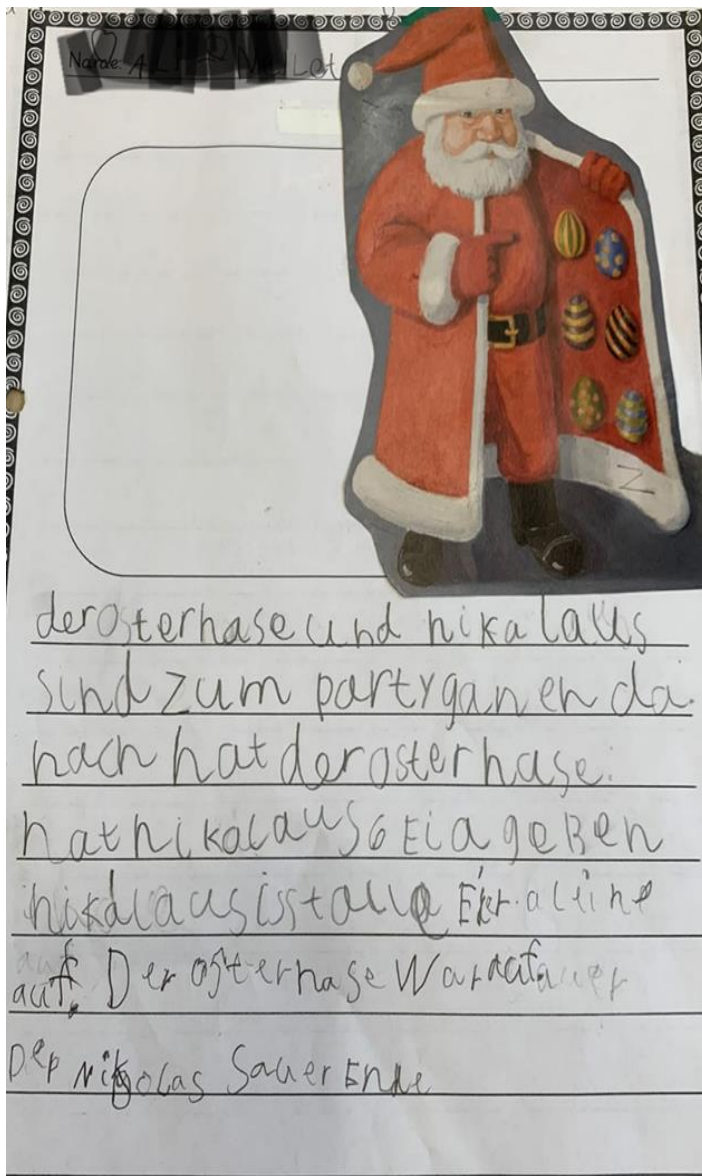 Name:
derosterhase und nikalaus
sind zum partyganen da.
nach hat derosterhase.
hat nikolaus 6 Eia geBen
nikalaus isst alle Eier aleine
auf. Der osterhase War auf
Der Nikolas Sauer Ende